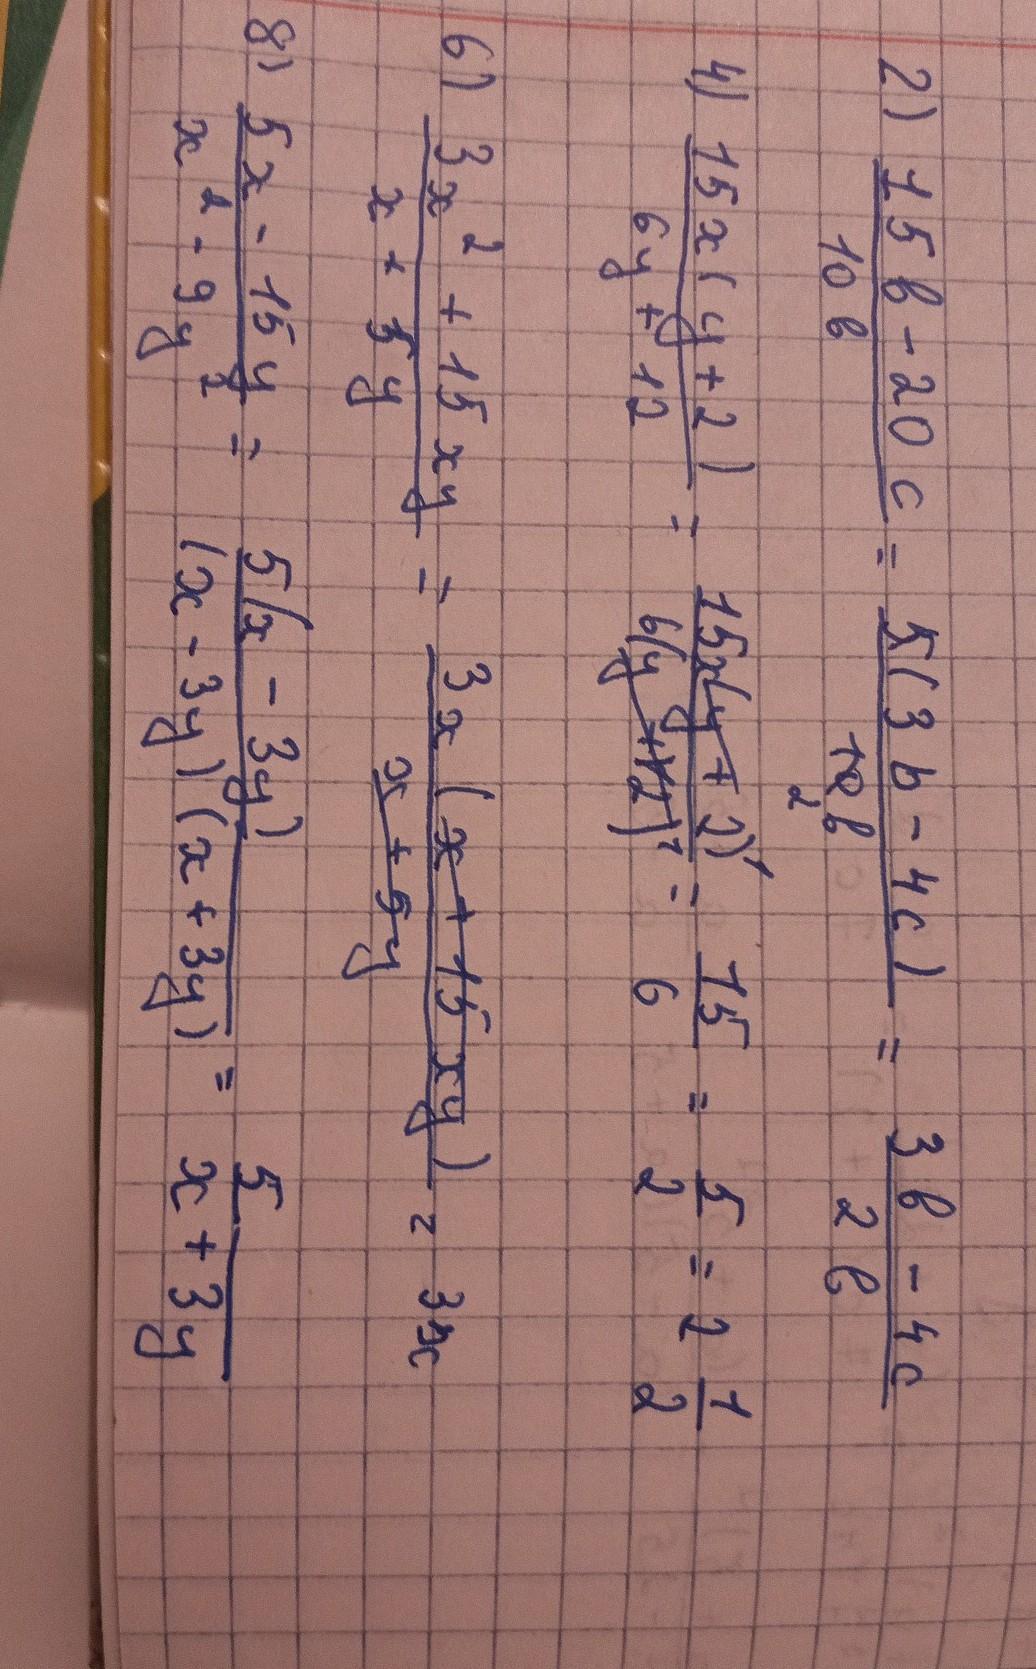 2) (15b - 20c)/(10b) = (5(3b - 4c))/(10b) 2 = (3b - 4c)/(2b)
4) (15x(y + 2))/(6y + 12) = (15x(y + 2)¹)/(6(y + 2)¹) = 15/6 = 5/2 = 2 1/2
6) (3x² + 15xy)/(x + 5y) = (3x(x + 15xy))/(x + 5y) = 3x
8) (5x - 15y)/(x² - 9y²) = (5(x - 3y))/((x - 3y)(x + 3y)) = 5/(x + 3y)